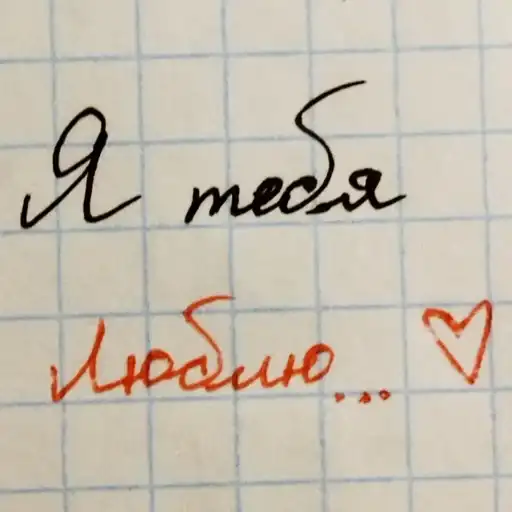 Я тебя
Люблю... ♡